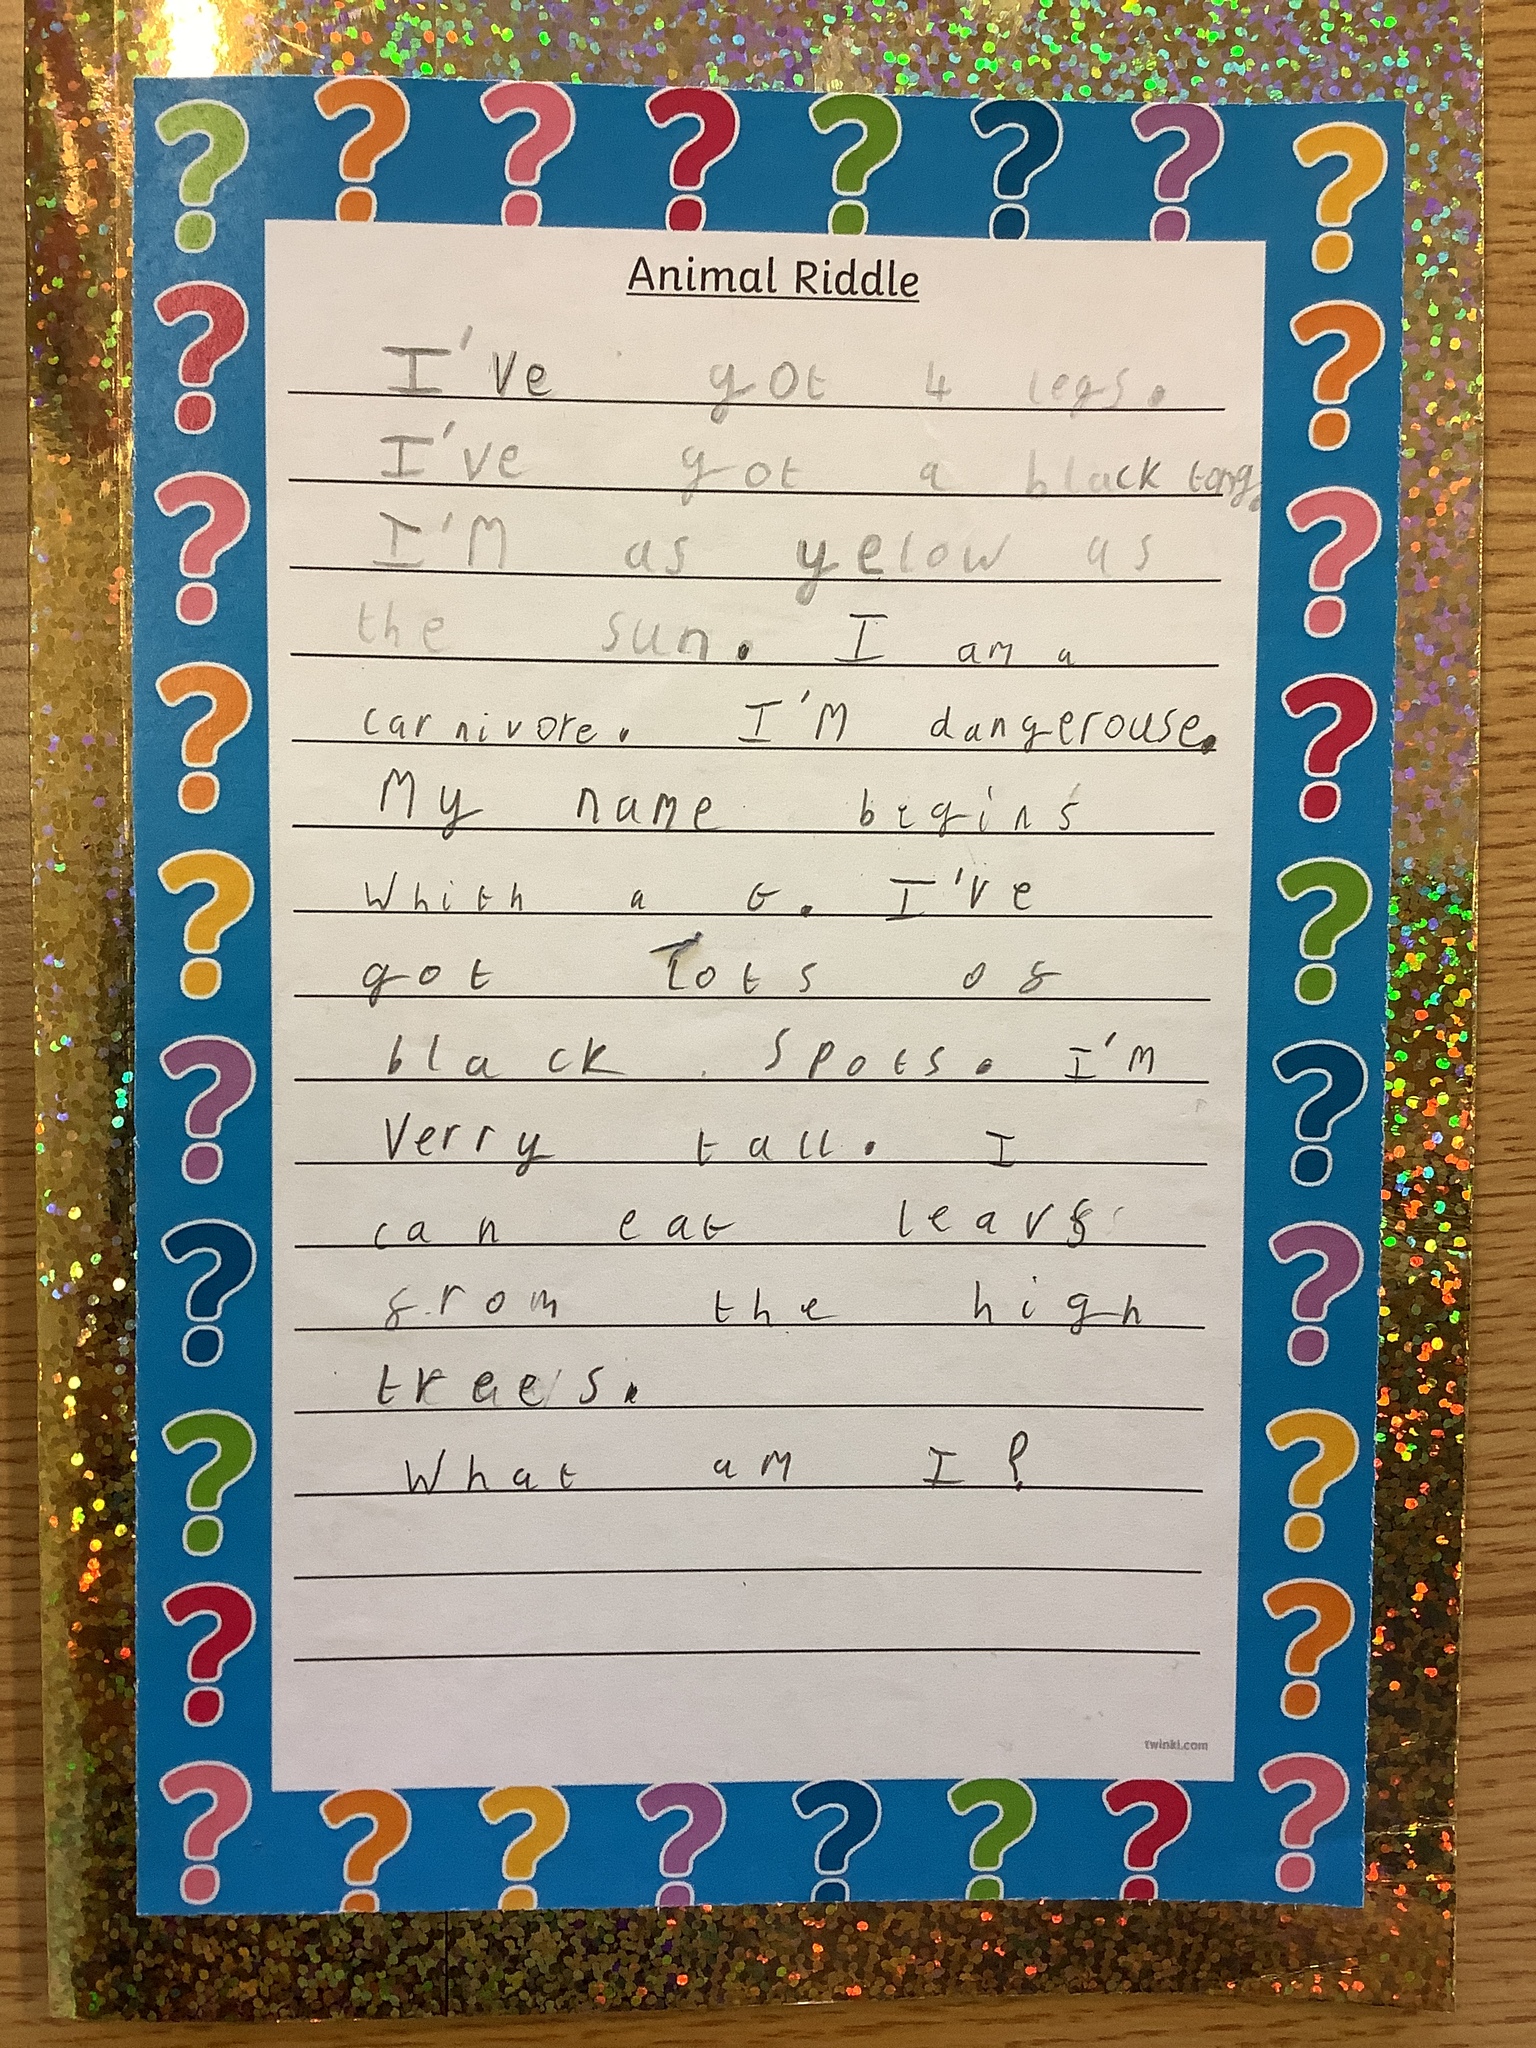 Animal Riddle
I've got 4 legs.
I've got a black tong.
I'M as yelow as
the sun. I am a
carnivore. I'M dangerouse.
My name begins
Whith a G. I've
got lots of
black spots. I'm
Verry tall. I
can eat leavs
from the high
trees.
What am I?
twinkl.com